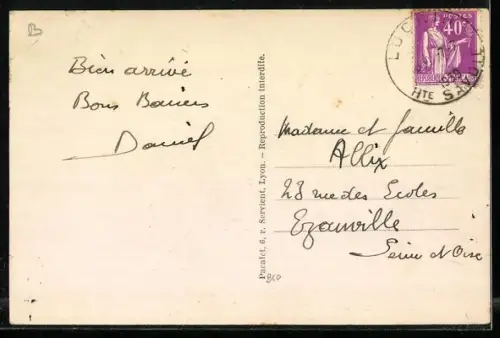 B
Bien arrivé
Bons Baisers
Daniel
Pacalet, 6, r. Servient, Lyon. — Reproduction interdite.
POSTES
40c
HTE
Madame et famille
Allix
23 rue des Ecoles
Ezanville
Seine et Oise